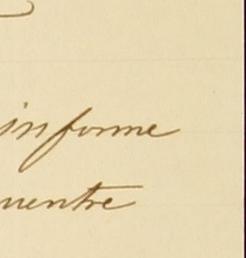 informe
uentre